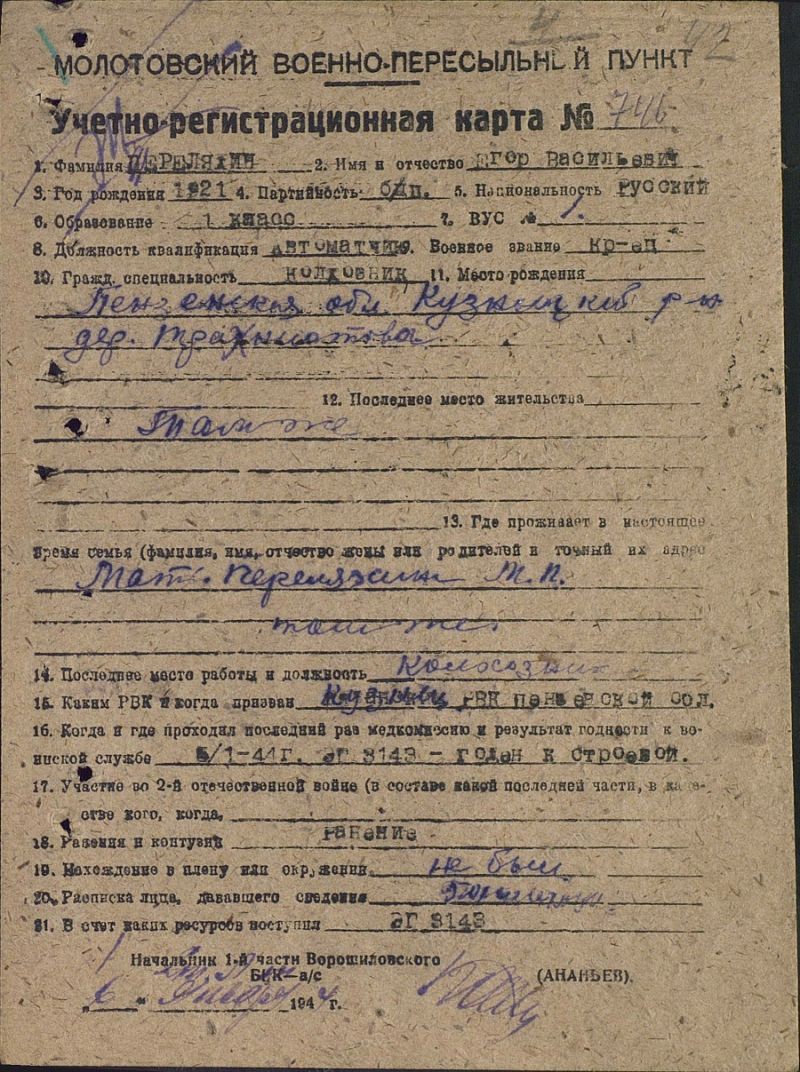 МОЛОТОВСКИЙ ВОЕННО-ПЕРЕСЫЛЬНЫЙ ПУНКТ
Учетно-регистрационная карта № 746
1. Фамилия ПЕРЕЛЯКИН 2. Имя и отчество ЕГОР ВАСИЛЬЕВИЧ
3. Год рождения 1921 4. Партийность б/п. 5. Национальность РУССКИЙ
6. Образование 1 класс 7. ВУС № 1
8. Должность квалификация АВТОМАТЧИК 9. Военное звание кр-ец
10. Гражд. специальность КОЛХОЗНИК 11. Место рождения
Пензенская обл Кузнецкий р-н
дер.
12. Последнее место жительства
Там же
13. Где проживает в настоящее
время семья (фамилия, имя, отчество жены или родителей и точный их адрес
Мать Перелякин М. П.
там же
14. Последнее место работы и должность Колхозник
15. Каким РВК и когда призван Кузнецк РВК пензенской обл.
16. Когда и где проходил последний раз медкомиссию и результат годности к во-
инской службе 5/1-44г. ЭГ 3143 - годен к строевой.
17. Участие во 2-й отечественной войне (в составе какой последней части, в каче-
стве кого, когда,
18. Ранения и контузии ранение
19. Нахождение в плену или окружении не был
20. Расписка лица, дававшего сведения
21. В счет каких ресурсов поступил ЭГ 3143
Начальник 1-й части Ворошиловского
БПК—а/с (АНАНЬЕВ).
„6“ Января 1944 г.